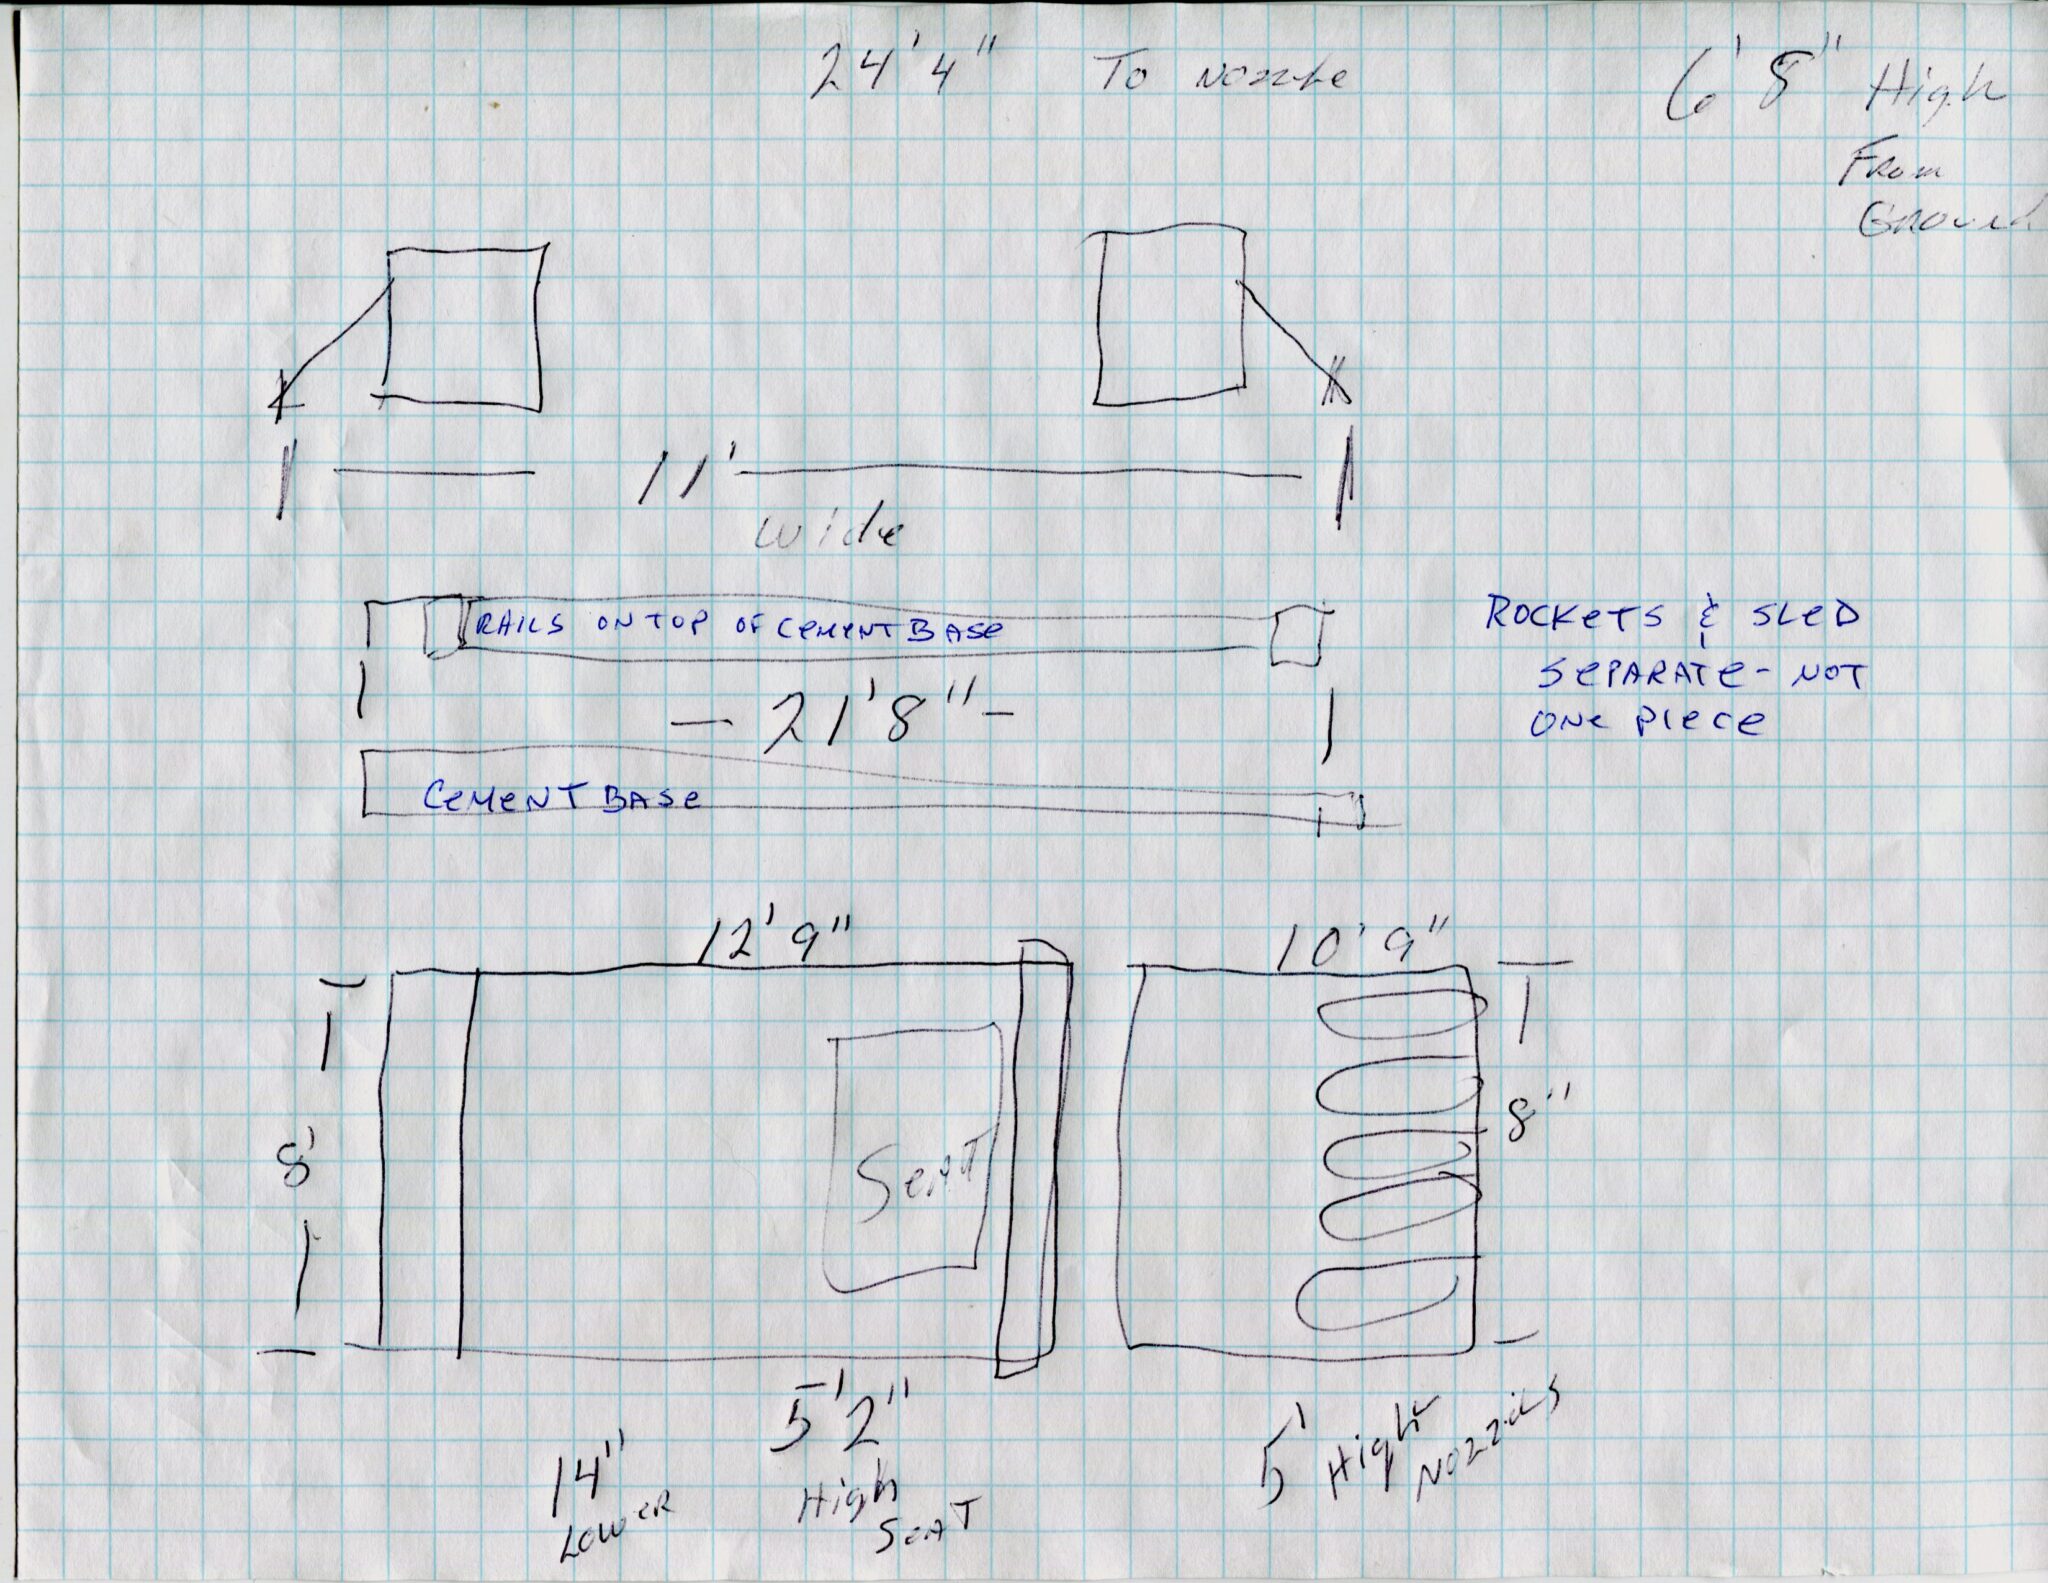 24'4" To Nozzle
6'8" High
From
Ground
11'
wide
RAILS ON TOP OF CEMENT BASE
ROCKETS & SLED
SEPARATE - NOT
ONE PIECE
- 21'8" -
CEMENT BASE
12'9"
10'9"
8'
SEAT
8"
5'2"
High
SEAT
14"
LOWER
5' High Nozzils